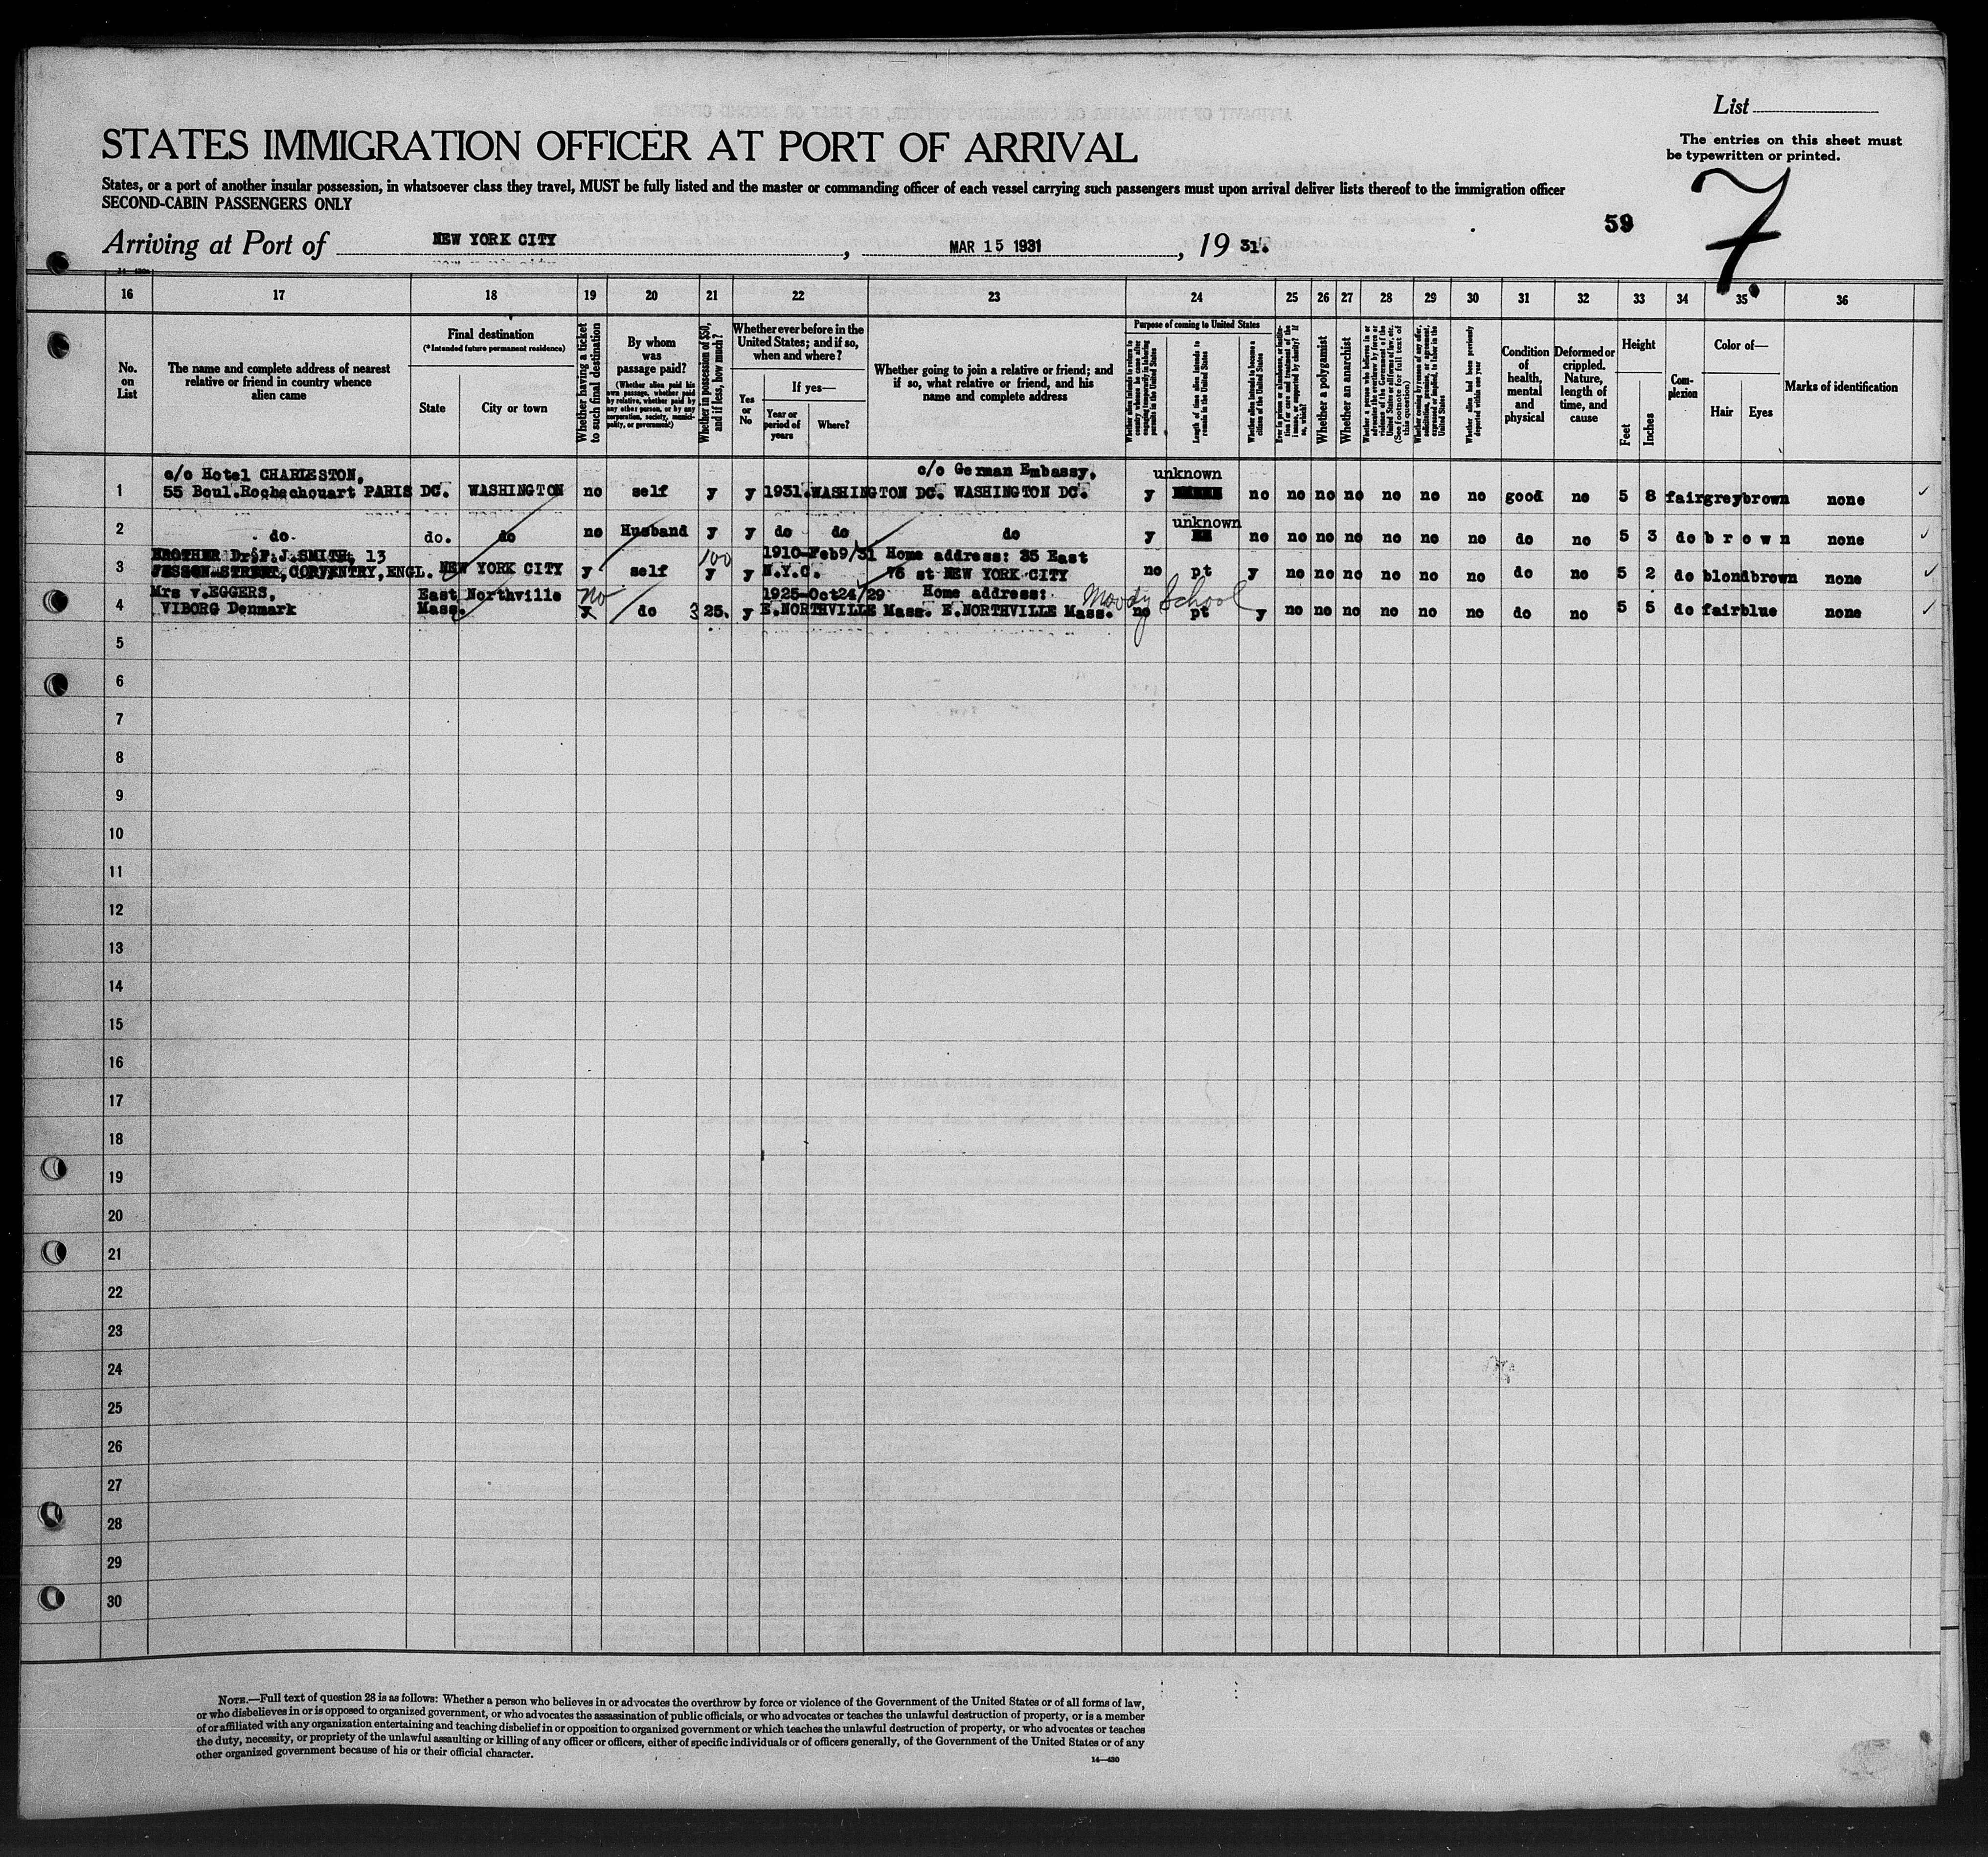 List
STATES IMMIGRATION OFFICER AT PORT OF ARRIVAL
The entries on this sheet must
be typewritten or printed.
States, or a port of another insular possession, in whatsoever class they travel, MUST be fully listed and the master or commanding officer of each vessel carrying such passengers must upon arrival deliver lists thereof to the immigration officer
SECOND-CABIN PASSENGERS ONLY
7.
59
Arriving at Port of NEW YORK CITY, MAR 15 1931, 19 31.
16 17 18 19 20 21 22 23 24 25 26 27 28 29 30 31 32 33 34 35 36
No. on List
The name and complete address of nearest relative or friend in country whence alien came
Final destination
(*Intended future permanent residence)
State
City or town
Whether having a ticket to such final destination
By whom was passage paid?
(Whether alien paid his own passage, whether paid by relative, whether paid by any other person, or by any corporation, society, municipality, or government)
Whether in possession of $50, and if less, how much?
Whether ever before in the United States; and if so, when and where?
Yes or No
If yes—
Year or period of years
Where?
Whether going to join a relative or friend; and if so, what relative or friend, and his name and complete address
Purpose of coming to United States
Whether alien intends to return to country whence he came after engaging temporarily in laboring pursuits in the United States
Length of time alien intends to remain in the United States
Whether alien intends to become a citizen of the United States
Whether a polygamist
Whether an anarchist
Whether alien had been previously deported within one year
Condition of health, mental and physical
Deformed or crippled. Nature, length of time, and cause
Height
Feet
Inches
Complexion
Color of—
Hair
Eyes
Marks of identification
c/o Hotel CHARLESTON, c/o German Embassy, unknown
1 55 Boul.Rochechouart PARIS DC. WASHINGTON no self y y 1931. WASHINGTON DC. WASHINGTON DC. y no no no no no no no good no 5 8 fair grey brown none
unknown
2 do do. do no Husband y y do do do y no no no no no no no do no 5 3 do brown none
BROTHER Dr.F.J.SMITH, 13 100 1910-Feb9/31 Home address: 35 East
3 JESSON STREET, CORVENTRY, ENGL. NEW YORK CITY y self y y N.Y.C. 76 st NEW YORK CITY no pt y no no no no no no do no 5 2 do blond brown none
Mrs v.EGGERS, East Northville no 1925-Oct24/29 Home address: Moody School
4 VIBORG Denmark Mass. do 325. y E.NORTHVILLE Mass. E.NORTHVILLE Mass. no pt y no no no no no no do no 5 5 do fair blue none
5
6
7
8
9
10
11
12
13
14
15
16
17
18
19
20
21
22
23
24
25
26
27
28
29
30
NOTE.—Full text of question 28 is as follows: Whether a person who believes in or advocates the overthrow by force or violence of the Government of the United States or of all forms of law,
or who disbelieves in or is opposed to organized government, or who advocates the assassination of public officials, or who advocates or teaches the unlawful destruction of property, or is a member
of or affiliated with any organization entertaining and teaching disbelief in or opposition to organized government or which teaches the unlawful destruction of property, or who advocates or teaches
the duty, necessity, or propriety of the unlawful assaulting or killing of any officer or officers, either of specific individuals or of officers generally, of the Government of the United States or of any
other organized government because of his or their official character.
14—430